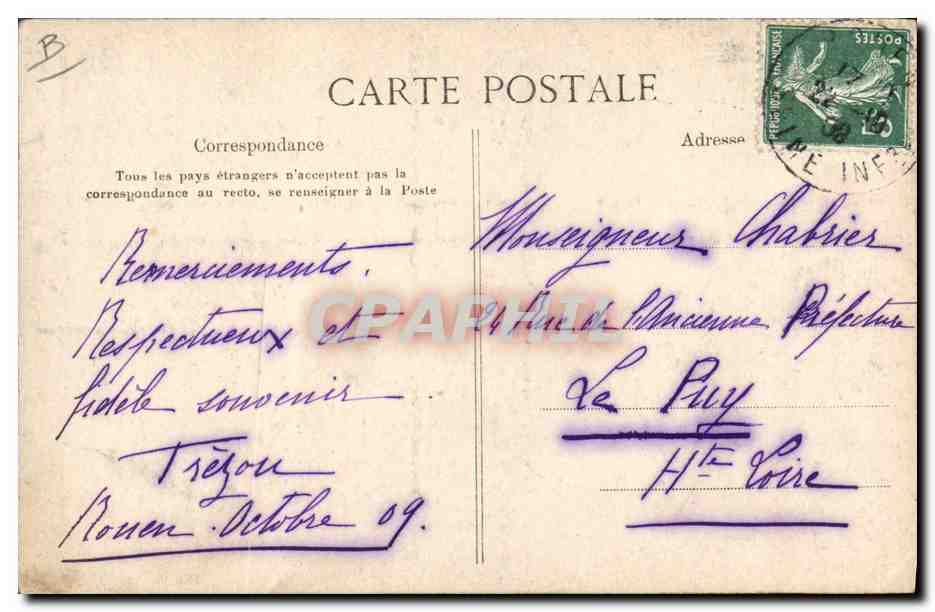 B
CARTE POSTALE
Correspondance
Tous les pays étrangers n'acceptent pas la
correspondance au recto, se renseigner à la Poste
Remerciements.
Respectueux et
fidèle souvenir
Trézou
Rouen. Octobre 09.
Adresse
Monseigneur Chabrier
24 Rue de l'Ancienne Préfecture
Le Puy
Hte Loire
REPUBLIQUE FRANÇAISE
POSTES
5c
17
22
INE INF
CPAPHIL